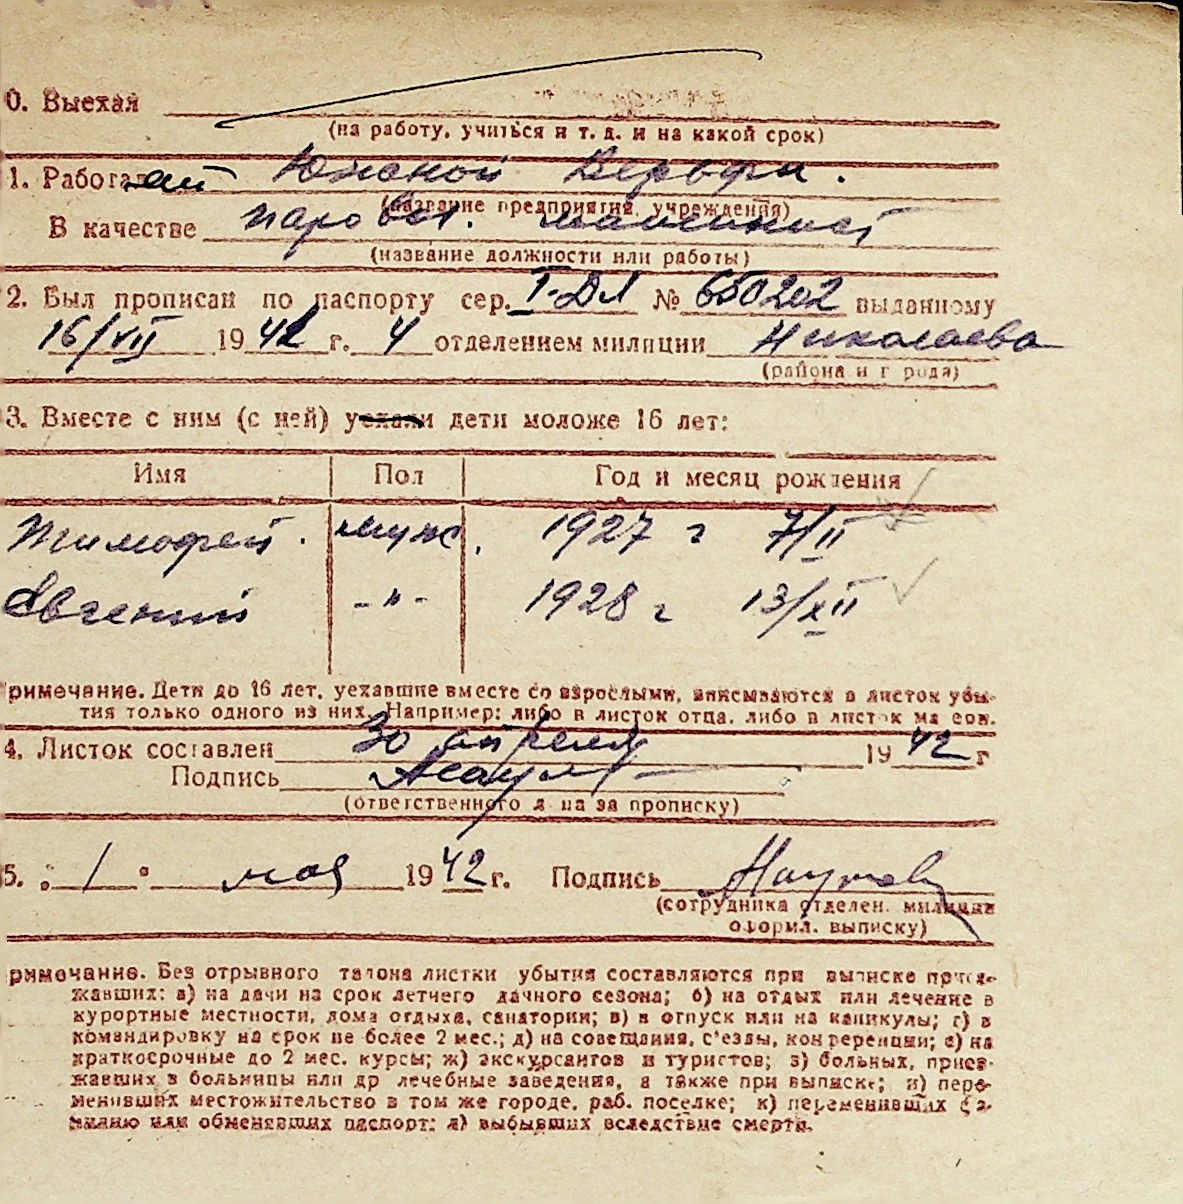 0. Выехал
(на работу, учиться и т. д. и на какой срок)
1. Работает Южной Верфи.
(название предприятия, учреждения)
В качестве паровоз. машинист
(название должности или работы)
2. Был прописан по паспорту сер. I-ДЛ № 650202 выданному
16/VII 1941 г. 4 отделением милиции Николаева
(района и города)
3. Вместе с ним (с ней) уехали дети моложе 16 лет:
Имя Пол Год и месяц рождения
Тимофей. муж. 1927 г 7/II
Евгений -"- 1928 г 13/XII
римечание. Дети до 16 лет, уехавшие вместе со взрослыми, вписываются в листок убы-
тия только одного из них. Например: либо в листок отца, либо в листок матери.
4. Листок составлен 30 апреля 1942 г
Подпись
(ответственного лица за прописку)
5. "1" мая 1942 г. Подпись
(сотрудника отделен. милиции
оформл. выписку)
римечание. Без отрывного талона листки убытия составляются при выписке приез-
жавших: а) на дачи на срок летнего дачного сезона; б) на отдых или лечение в
курортные местности, дома отдыха, санатории; в) в отпуск или на каникулы; г) в
командировку на срок не более 2 мес.; д) на совещания, с'езды, конференции; е) на
краткосрочные до 2 мес. курсы; ж) экскурсантов и туристов; з) больных, приез-
жавших в больницы или др лечебные заведения, а также при выписке; и) пере-
менивших местожительство в том же городе, раб. поселке; к) переменивших фа-
милию или обменявших паспорт; л) выбывших вследствие смерти.